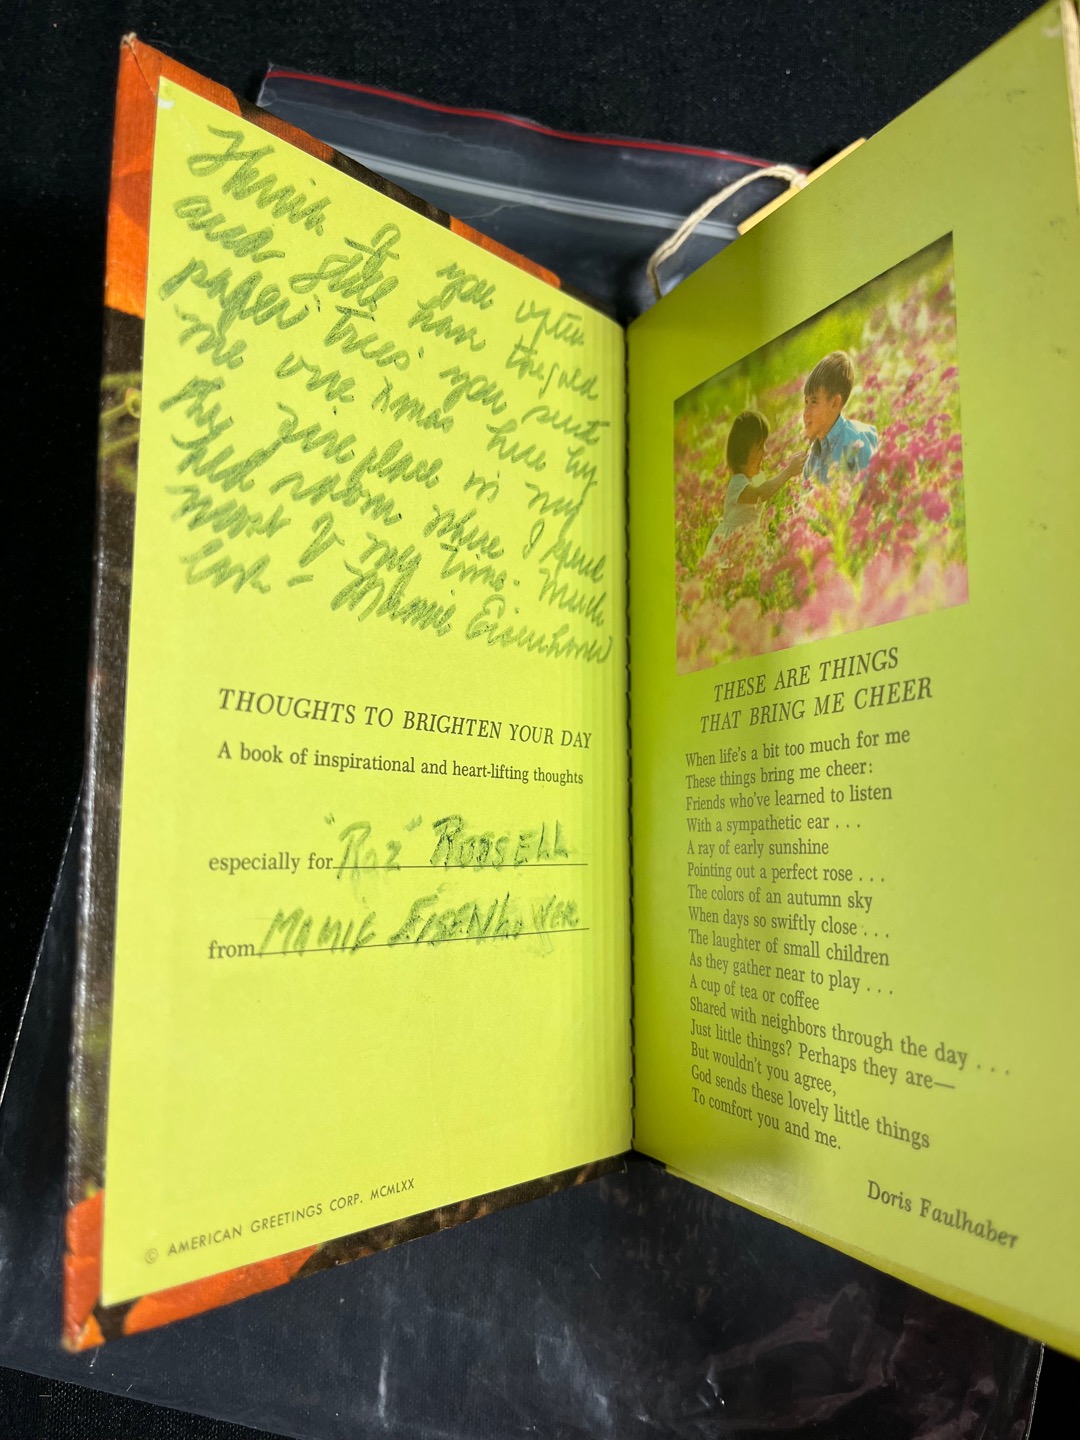 Think of you often
and still have the gold
paper "trees" you sent
me one Xmas here by
the fire place in my
bed room where I spend
most of my time. Much
love - Mamie Eisenhower
THOUGHTS TO BRIGHTEN YOUR DAY
A book of inspirational and heart-lifting thoughts
especially for "Roz" RUSSELL
from MAMIE EISENHOWER
© AMERICAN GREETINGS CORP. MCMLXX
THESE ARE THINGS
THAT BRING ME CHEER
When life's a bit too much for me
These things bring me cheer:
Friends who've learned to listen
With a sympathetic ear . . .
A ray of early sunshine
Pointing out a perfect rose . . .
The colors of an autumn sky
When days so swiftly close . . .
The laughter of small children
As they gather near to play . . .
A cup of tea or coffee
Shared with neighbors through the day . . .
Just little things? Perhaps they are—
But wouldn't you agree,
God sends these lovely little things
To comfort you and me.
Doris Faulhaber